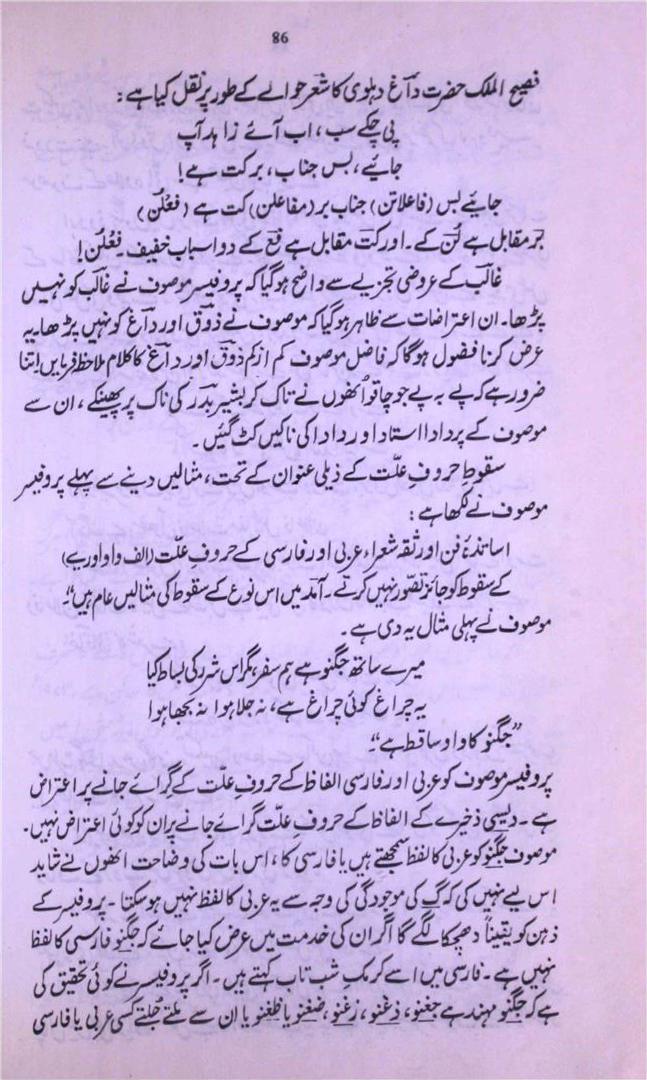 86
فصیح الملک حضرت داغؔ دہلوی کا شعر حوالے کے طور پر نقل کیا ہے :
پی چکے سب ، اب آئے زاہد آپ
جایئے ، بس جناب ، برکت ہے !
جایئے بس (فاعلاتن) جناب بر (مفاعلن) کت ہے (فعْلُن)
بَر مقابل ہے لُن کے۔ اور کت مقابل ہے فع کے دو اسباب خفیف ۔ فعْلُن !
غالبؔ کے عروضی تجزیے سے واضح ہو گیا کہ پروفیسر موصوف نے غالبؔ کو نہیں
پڑھا۔ ان اعتراضات سے ظاہر ہو گیا کہ موصوف نے ذوقؔ اور داغؔ کو نہیں پڑھا۔ یہ
عرض کرنا فضول ہوگا کہ فاضل موصوف کم از کم ذوقؔ اور داغؔ کا کلام ملاحظہ فرمایں اِتنا
ضرور ہے کہ پے بہ پے جو چاقو اُنھوں نے تاک کر بشیر بدرؔ کی ناک پر پھینکے ، ان سے
موصوف کے پردادا استاد اور دادا کی ناکیں کٹ گئیں ۔
سقوطِ حروفِ علّت کے ذیلی عنوان کے تحت ، مثالیں دینے سے پہلے پروفیسر
موصوف نے لکھا ہے :
اساتذۂ فن اور ثقہ شعراء عربی اور فارسی کے حروفِ علّت (الف واو اور یے)
کے سقوط کو جائز تصّور نہیں کرتے ۔ آمد میں اس نوع کے سقوط کی مثالیں عام ہیں"۔
موصوف نے پہلی مثال یہ دی ہے ۔
میرے ساتھ جگنو ہے ہم سفر، مگر اس شرر کی بساط کیا
یہ چراغ کوئی چراغ ہے ، نہ جلا ہوا نہ بجھا ہوا
"جگنو کا واو ساقط ہے"۔
پروفیسر موصوف کو عربی اور فارسی الفاظ کے حروفِ علّت کے گرائے جانے پر اعتراض
ہے ۔ دیسی ذخیرے کے الفاظ کے حروفِ علّت گرائے جانے پر ان کو کوئی اعتراض نہیں ۔
موصوف جگنو کو عربی کا لفظ سمجھتے ہیں یا فارسی کا ، اس بات کی وضاحت انھوں نے شاید
اس لیے نہیں کی کہ گ کی موجودگی کی وجہ سے یہ عربی کا لفظ نہیں ہو سکتا ۔ پروفیسر کے
ذہن کو یقیناً دھچکا لگے گا اگر ان کی خدمت میں عرض کیا جائے کہ جگنو فارسی کا لفظ
نہیں ہے ۔ فارسی میں اسے کرمکِ شب تاب کہتے ہیں ۔ اگر پروفیسر نے کوئی تحقیق کی
ہے کہ جگنو مہند ہے جغنو ، ذغنو ، زغنو ، ضغنو یا ظغنو یا ان سے ملتے جُلتے کسی عربی یا فارسی